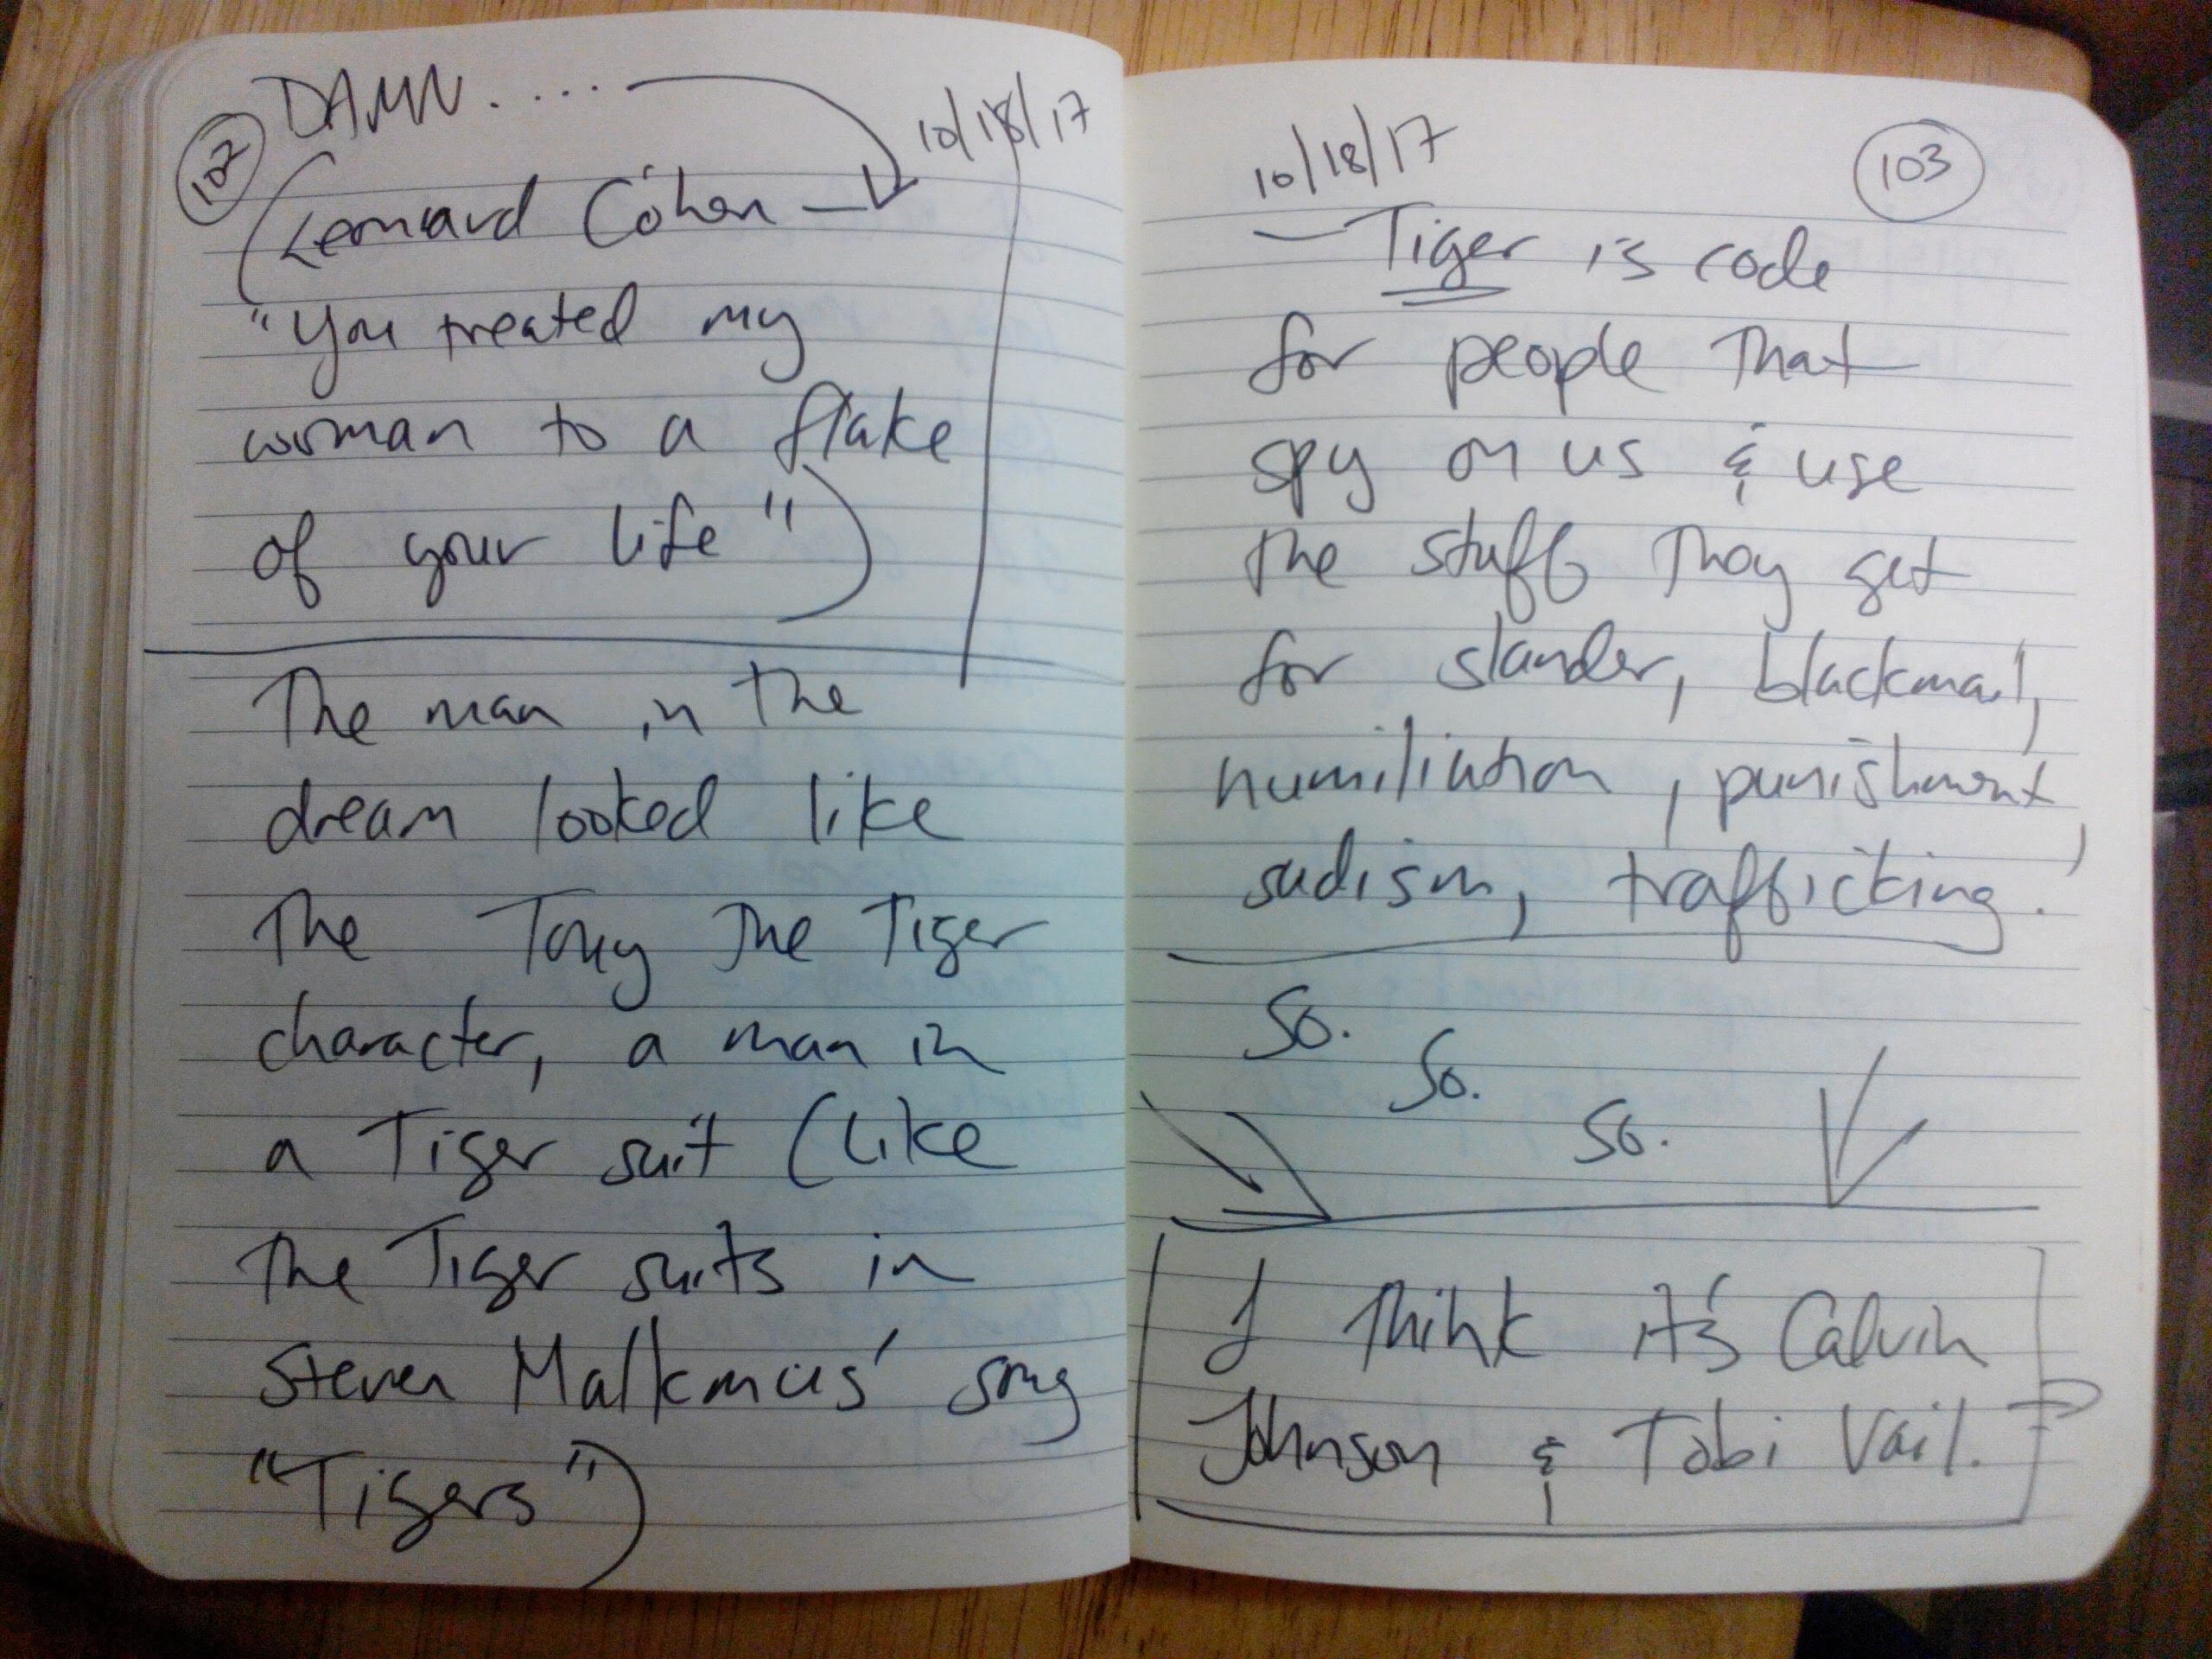 DAMN.....
102
10/18/17
(Leonard Cohen —
"You treated my
woman to a flake
of your life")
The man in the
dream looked like
The Tony The Tiger
character, a man in
a Tiger suit (like
the Tiger suits in
Steven Malkmus' song
"Tigers")
10/18/17
103
— Tiger is code
for people that
spy on us & use
the stuff they get
for slander, blackmail,
humiliation, punishment,
sadism, trafficking.
So.
So.
So.
I think it's Calvin
Johnson & Tobi Vail.